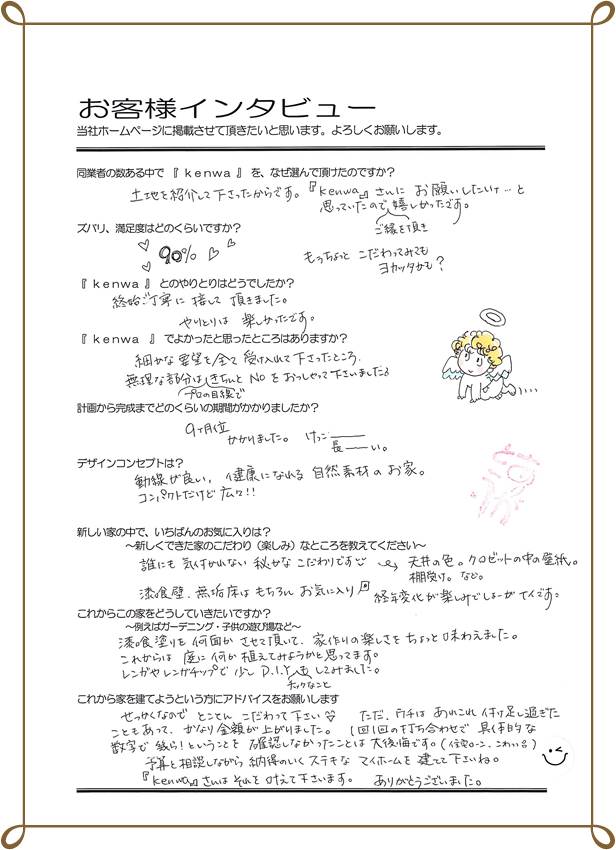 お客様インタビュー
当社ホームページに掲載させて頂きたいと思います。よろしくお願いします。
同業者の数ある中で『kenwa』を、なぜ選んで頂けたのですか?
土地を紹介して下さったからです。『kenwa』さんに お願いしたいけ…と
思っていたので嬉しかったです。
ご縁を頂き
ズバリ、満足度はどのくらいですか?
90%
もうちょっと こだわってみても
ヨカッタかも?
『kenwa』とのやりとりはどうでしたか?
終始ご丁寧に 接して 頂きました。
やりとりは 楽しかったです。
『kenwa』でよかったと思ったところはありますか?
細かな要望を全て受け入れて下さったところ.
無理な部分はきちんと NOを おっしゃって下さいました♪
プロの目線で
計画から完成までどのくらいの期間がかかりましたか?
9ヶ月位
かかりました。 けっこー
長ーい。
デザインコンセプトは?
動線が良い, 健康になれる 自然素材の お家。
コンパクトだけど 広々!!
新しい家の中で、いちばんのお気に入りは?
～新しくできた家のこだわり(楽しみ)なところを教えてください～
誰にも 気付かれない 秘かな こだわりです
天井の色。クロゼットの中の壁紙。
棚受け。など。
漆喰壁. 無垢床は もちろん お気に入り
経年変化が楽しみでしょーが ナイです。
これからこの家をどうしていきたいですか?
～例えばガーデニング・子供の遊び場など～
漆喰塗りを 何面か させて頂いて、家作りの楽しさを ちょっと 味わえました。
これからは 庭に 何か 植えてみようかと思ってます。
レンガや レンガチップで 少し D.I.Yも してみました。
チックなこと
これから家を建てようという方にアドバイスをお願いします
せっかくなので とことん こだわって 下さい♡ ただ、ウチは あれこれ 付け足し過ぎた
こともあって、かなり金額が上がりました。 1回1回の打ち合わせで 具体的な
数字で 残ら!ということを 確認しなかったことは 大後悔です。(住宅ローン、こわいっ!)
予算と相談しながら 納得のいく ステキな マイホームを 建てて 下さいね。
『kenwa』さんは それを 叶えて 下さいます。 ありがとうございました。